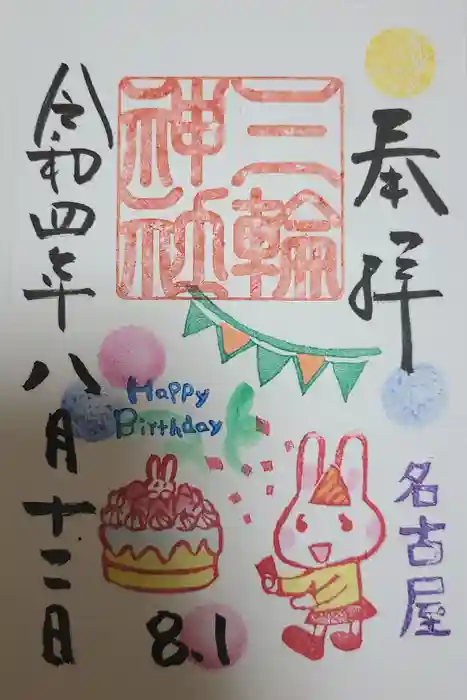 奉拝
三輪
神社
名古屋
Happy
Birthday
8.1
令和四年八月十二日